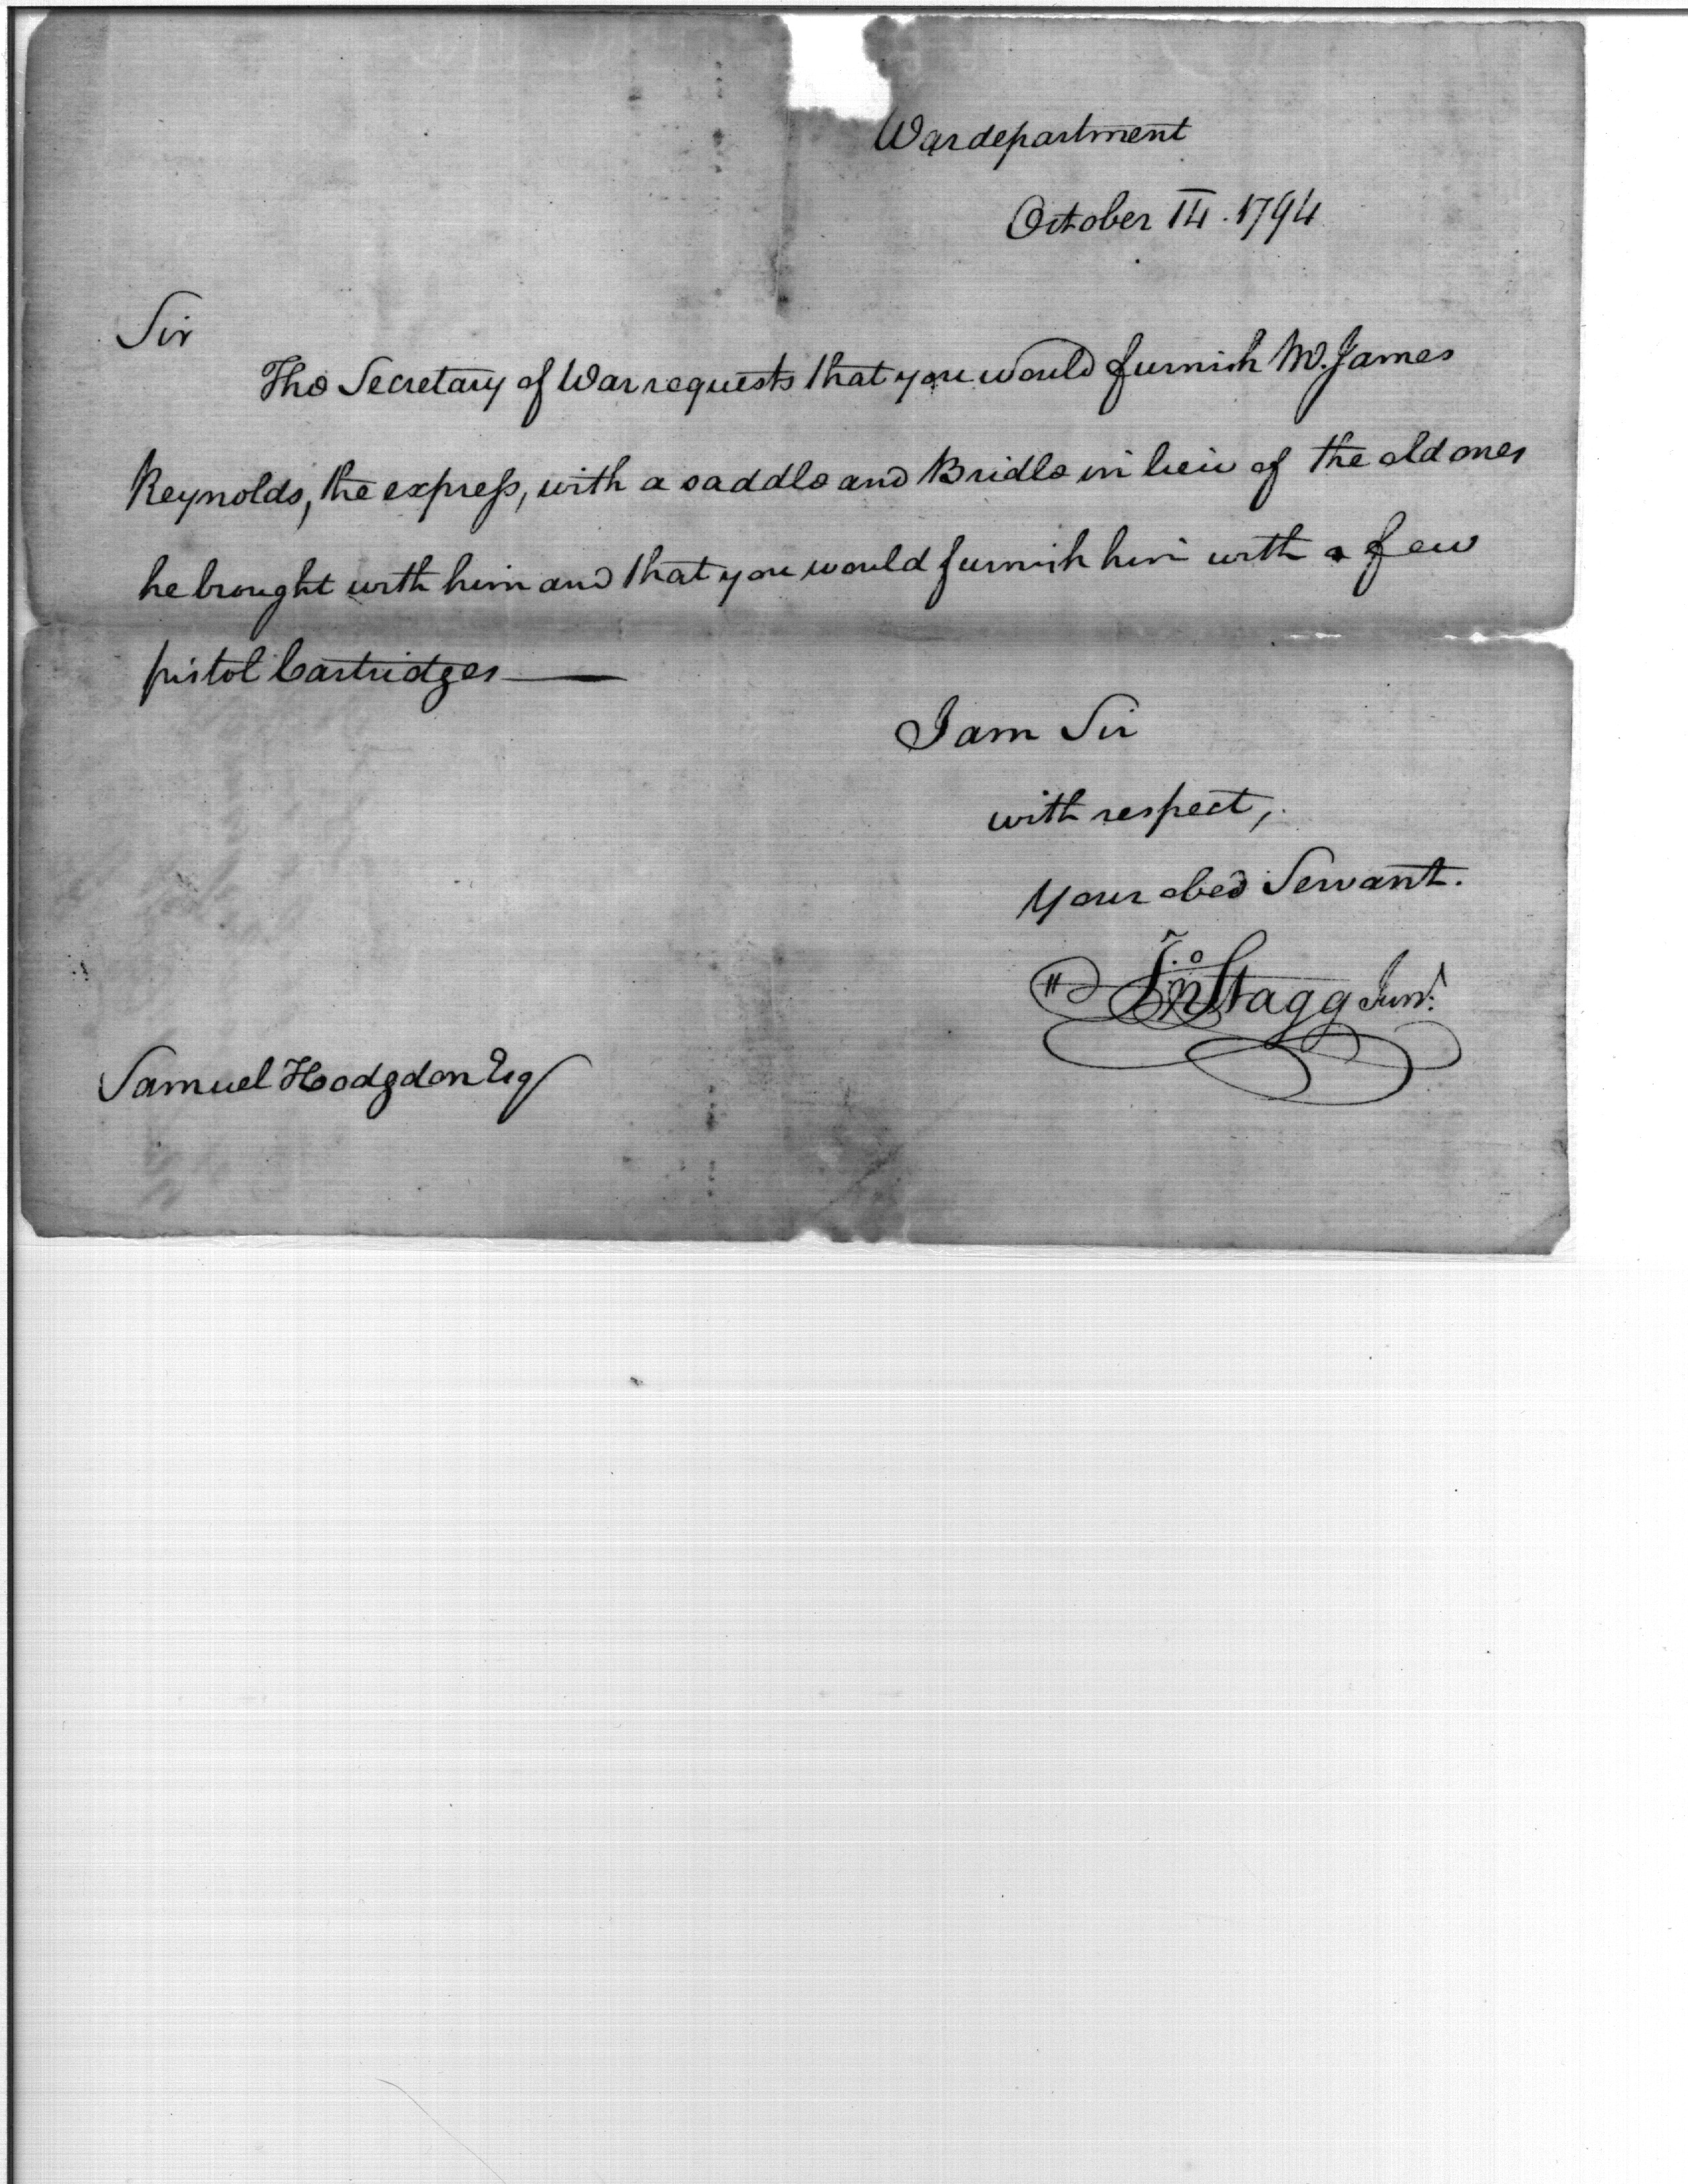 War department
October 14. 1794
Sir
The Secretary of War requests that you would furnish Mr. James
Reynolds, the express, with a saddle and Bridle in lieu of the old ones
he brought with him and that you would furnish him with a few
pistol Cartridges
I am Sir
with respect,
Your obed Servant.
Jno Stagg Junr.
Samuel Hodgdon Esq